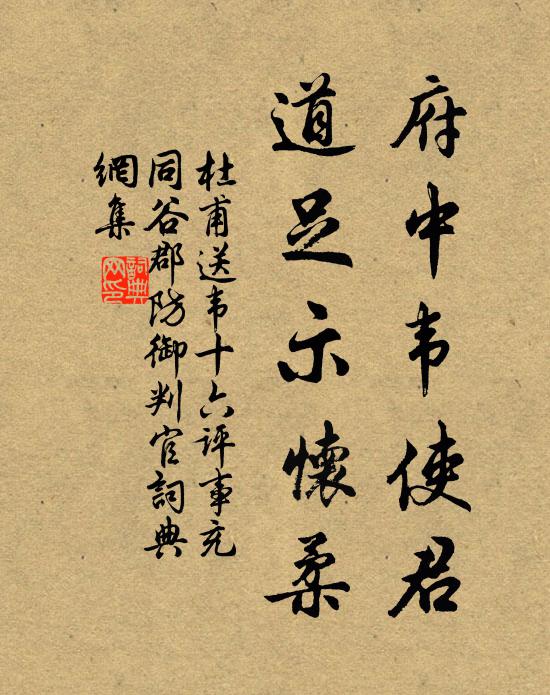 府中韦使君
道足示懷柔
杜甫送韦十六评事充
同谷郡防御判官詞典
網集
詞典
网印